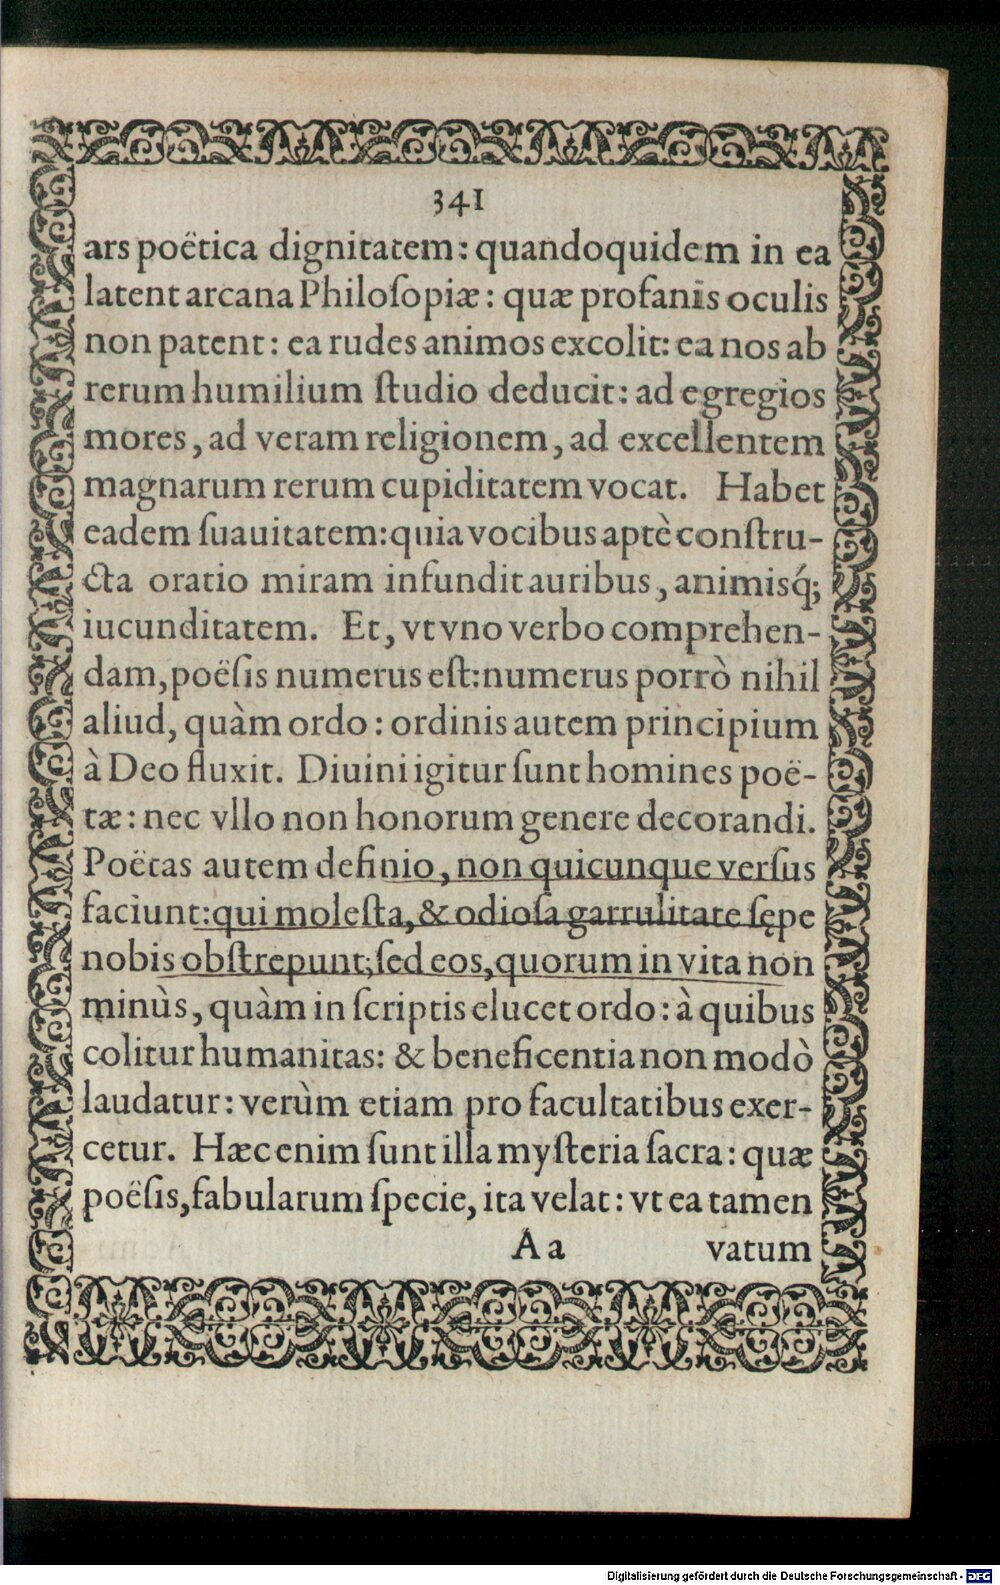 341
ars poëtica dignitatem: quandoquidem in ea
latent arcana Philoſopiæ: quæ profanis oculis
non patent: ea rudes animos excolit: ea nos ab
rerum humilium ſtudio deducit: ad egregios
mores, ad veram religionem, ad excellentem
magnarum rerum cupiditatem vocat. Habet
eadem ſuauitatem: quia vocibus aptè conſtru-
cta oratio miram infundit auribus, animisq́;
iucunditatem. Et, vt vno verbo comprehen-
dam, poëſis numerus eſt: numerus porrò nihil
aliud, quàm ordo: ordinis autem principium
à Deo fluxit. Diuini igitur ſunt homines poë-
tæ: nec vllo non honorum genere decorandi.
Poëtas autem definio, non quicunque verſus
faciunt: qui moleſta, & odioſa garrulitate ſępe
nobis obſtrepunt; ſed eos, quorum in vita non
minùs, quàm in ſcriptis elucet ordo: à quibus
colitur humanitas: & beneficentia non modò
laudatur: verùm etiam pro facultatibus exer-
cetur. Hæc enim ſunt illa myſteria ſacra: quæ
poëſis, fabularum ſpecie, ita velat: vt ea tamen
A a vatum
Digitalisierung gefördert durch die Deutsche Forschungsgemeinschaft - DFG